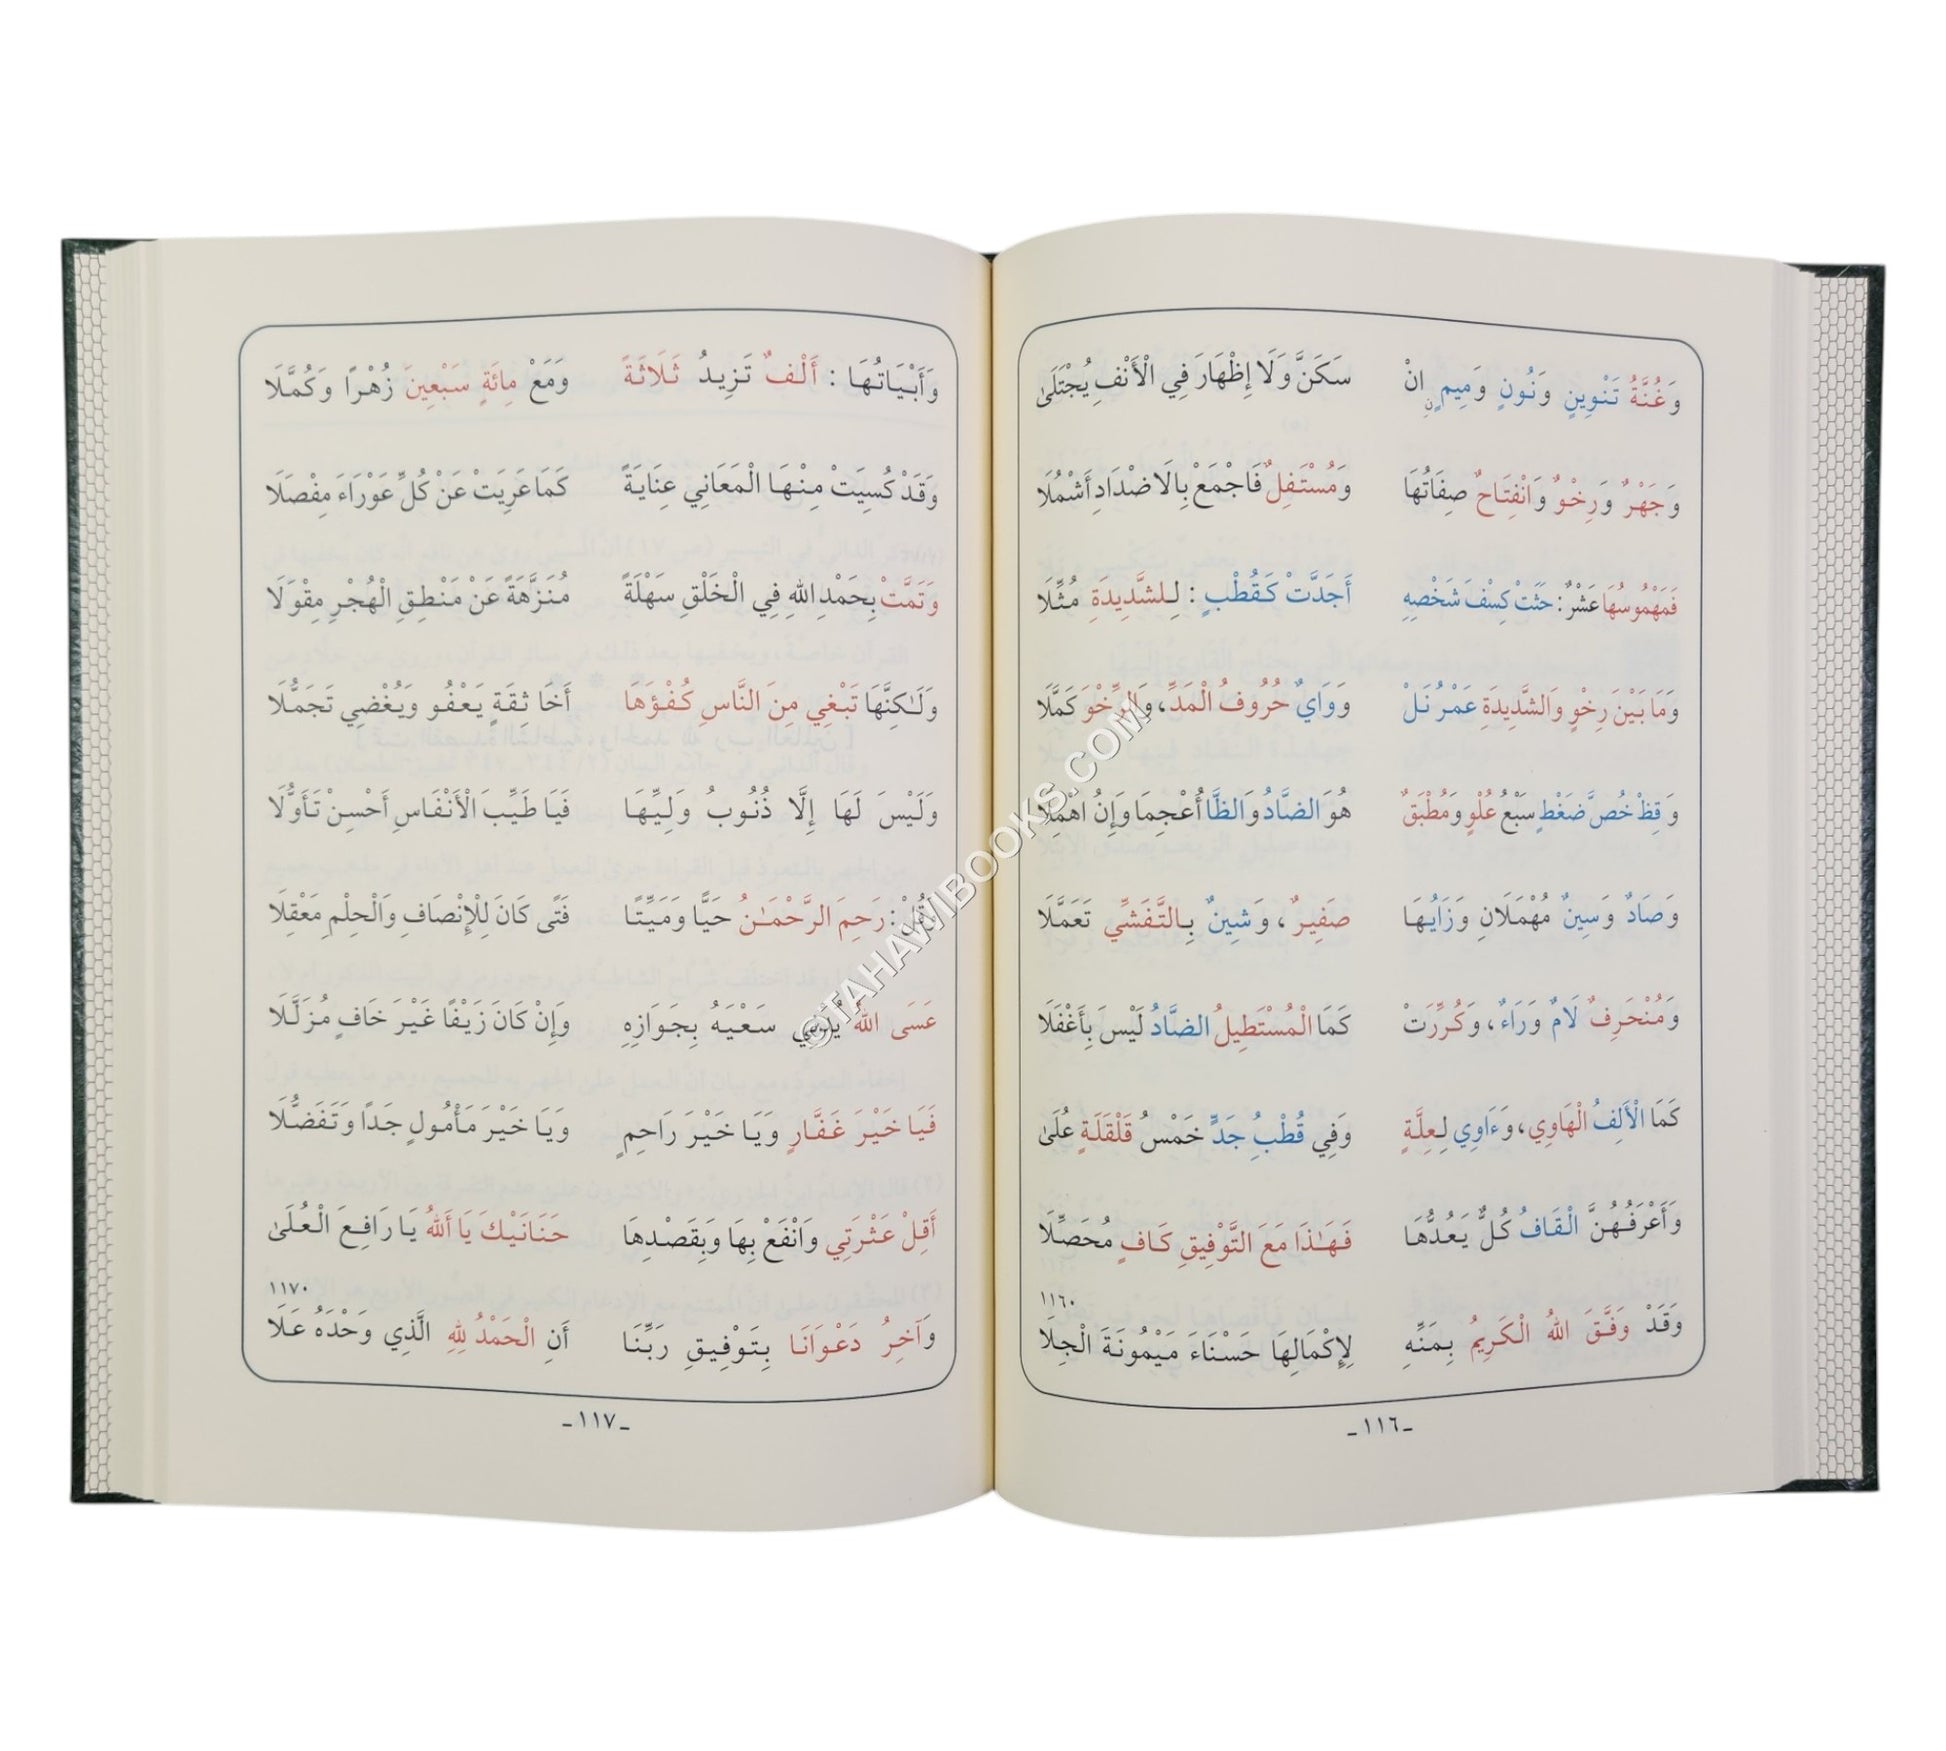 وَغُنَّةُ تَنْوِينٍ وَنُونٍ وَمِيمٍ انْ سَكَنَّ وَلَا إِظْهَارَ فِي الْأَنْفِ يُجْتَلَىٰ
وَجَهْرٌ وَرِخْوٌ وَانْفِتَاحٌ صِفَاتُهَا وَمُسْتَفِلٌ فَاجْمَعْ بِالَاضْدَادِ أَشْمُلَا
فَمَهْمُوسُهَا عَشْرٌ: حَثَتْ كِسْفَ شَخْصِهِ أَجَدَّتْ كَقُطْبٍ : لِلشَّدِيدَةِ مُثِّلَا
وَمَا بَيْنَ رِخْوٍ وَالشَّدِيدَةِ عَمْرُ نَلْ وَوَايٌ حُرُوفُ الْمَدِّ، وَالرِّخْوَ كَمَّلَا
وَقِظْ خُصَّ ضَغْطٍ سَبْعُ عُلْوٍ وَمُطْبَقٌ هُوَ الضَّادُ وَالظَّا أُعْجِمَا وَإِنُ اهْمِلَا
وَصَادٌ وَسِينٌ مُهْمَلَانِ وَزَايُهَا صَفِيرٌ ، وَشِينٌ بِالتَّفَشِّي تَعَمَّلَا
وَمُنْحَرِفٌ لَامٌ وَرَاءٌ، وَكُرِّرَتْ كَمَا الْمُسْتَطِيلُ الضَّادُ لَيْسَ بِأَغْفَلَا
كَمَا الْأَلِفُ الْهَاوِي، وَءَاوِي لِعِلَّةٍ وَفِي قُطْبُ جَدٍّ خَمْسُ قَلْقَلَةٍ عُلَىٰ
وَأَعْرَفُهُنَّ الْقَافُ كُلٌّ يَعُدُّهَا فَهَٰذَا مَعَ التَّوْفِيقِ كَافٍ مُحَصِّلَا
١١٦٠
وَقَدْ وَفَّقَ اللهُ الْكَرِيمُ بِمَنِّهِ لِإِكْمَالِهَا حَسْنَاءَ مَيْمُونَةَ الْجِلَا
-١١٦-
وَأَبْيَاتُهَا : أَلْفٌ تَزِيدُ ثَلَاثَةً وَمَعْ مِائَةٍ سَبْعِينَ زُهْرًا وَكُمَّلَا
وَقَدْ كُسِيَتْ مِنْهَا الْمَعَانِي عِنَايَةً كَمَا عَرِيَتْ عَنْ كُلِّ عَوْرَاءَ مِفْصَلَا
وَتَمَّتْ بِحَمْدِ اللهِ فِي الْخَلْقِ سَهْلَةً مُنَزَّهَةً عَنْ مَنْطِقِ الْهُجْرِ مِقْوَلَا
وَلَٰكِنَّهَا تَبْغِي مِنَ النَّاسِ كُفْؤَهَا أَخَا ثِقَةٍ يَعْفُو وَيُغْضِي تَجَمُّلَا
وَلَيْسَ لَهَا إِلَّا ذُنُوبُ وَلِيِّهَا فَيَا طَيِّبَ الْأَنْفَاسِ أَحْسِنْ تَأَوُّلَا
وَقُلْ: رَحِمَ الرَّحْمَٰنُ حَيًّا وَمَيِّتًا فَتًى كَانَ لِلْإِنْصَافِ وَالْحِلْمِ مَعْقِلَا
عَسَى اللهُ يُدْنِي سَعْيَهُ بِجَوَازِهِ وَإِنْ كَانَ زَيْفًا غَيْرَ خَافٍ مُزَلَّلَا
فَيَا خَيْرَ غَفَّارٍ وَيَا خَيْرَ رَاحِمٍ وَيَا خَيْرَ مَأْمُولٍ جَدًا وَتَفَضُّلَا
أَقِلْ عَثْرَتِي وَانْفَعْ بِهَا وَبِقَصْدِهَا حَنَانَيْكَ يَا أَللهُ يَا رَافِعَ الْعُلَىٰ
١١٧٠
وَآخِرُ دَعْوَانَا بِتَوْفِيقِ رَبِّنَا أَنِ الْحَمْدُ لِلهِ الَّذِي وَحْدَهُ عَلَا
-١١٧-
©TAHAWIBOOKS.COM